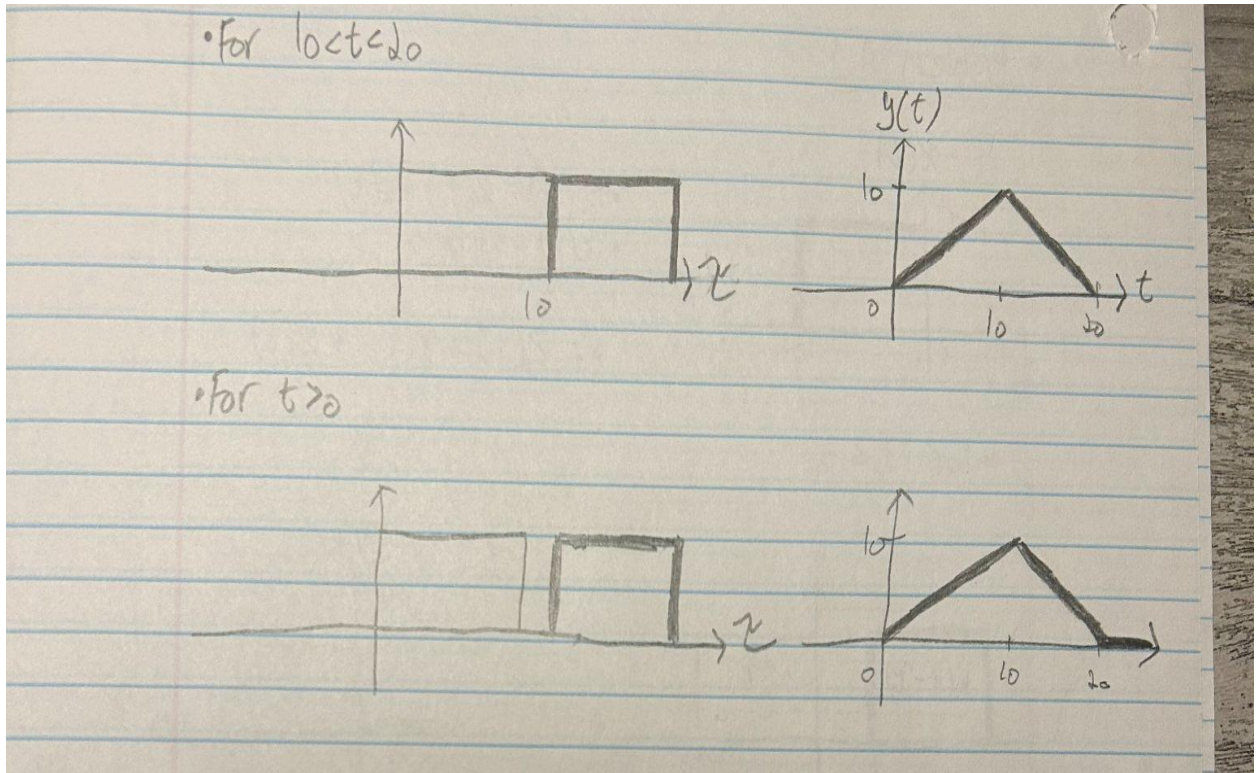 •For 10<t<20
y(t)
10
τ
t
10
0
10
20
•For t>0
10
τ
0
10
20